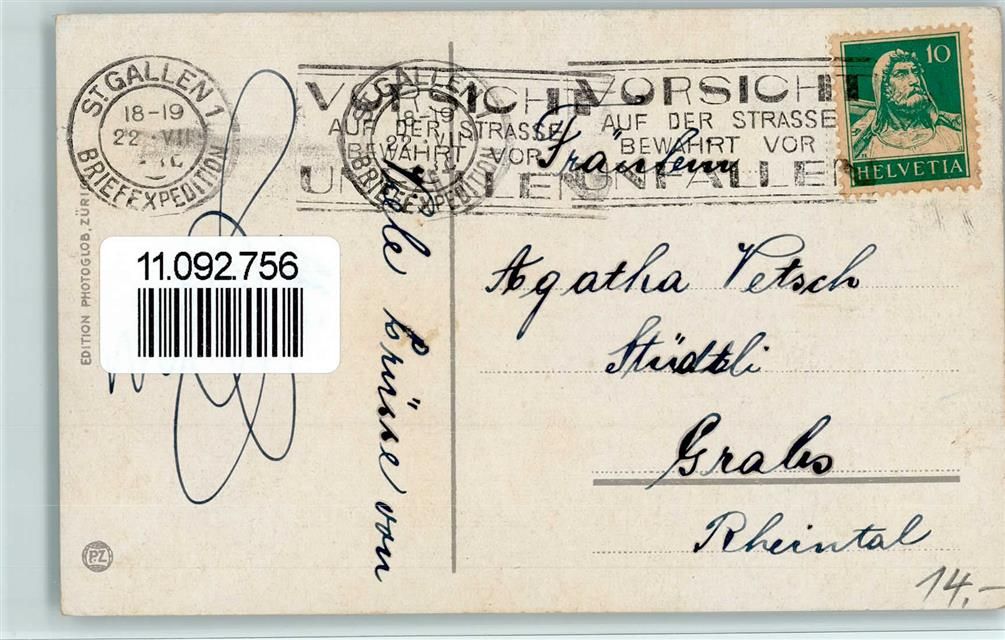 ST. GALLEN 1
18-19
22. VII
BRIEFEXPEDITION
ST. GALLEN 1
18-19
22. VII
BRIEFEXPEDITION
VORSICHT
AUF DER STRASSE
BEWAHRT VOR
UNFÄLLEN
VORSICHT
AUF DER STRASSE
BEWAHRT VOR
UNFÄLLEN
10
HELVETIA
Fräulein
Agatha Vetsch
Städtli
Grabs
Rheintal
Viele Grüsse von
EDITION PHOTOGLOB, ZÜRICH
11.092.756
P.Z
14,-